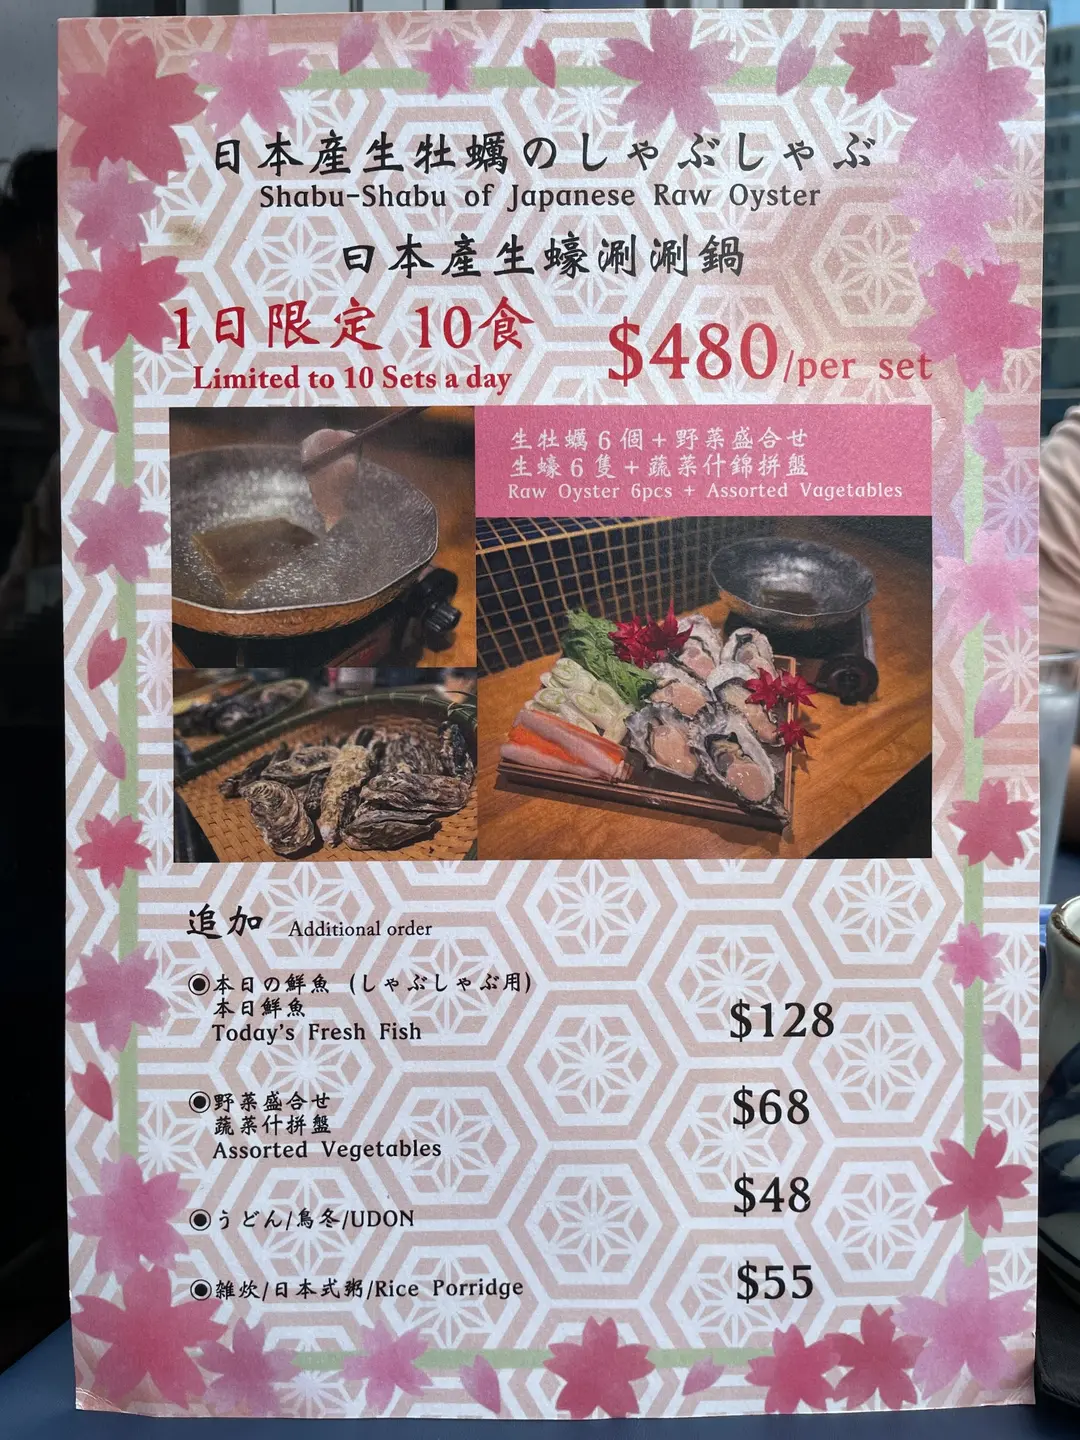 日本産生牡蠣のしゃぶしゃぶ
Shabu-Shabu of Japanese Raw Oyster
日本產生蠔涮涮鍋
1日限定 10食
Limited to 10 Sets a day
$480/per set
生牡蠣6個+野菜盛合せ
生蠔6隻+蔬菜什錦拼盤
Raw Oyster 6pcs + Assorted Vagetables
追加 Additional order
◉本日の鮮魚 (しゃぶしゃぶ用)
本日鮮魚
Today's Fresh Fish
$128
◉野菜盛合せ
蔬菜什拼盤
Assorted Vegetables
$68
◉うどん/烏冬/UDON
$48
◉雑炊/日本式粥/Rice Porridge
$55